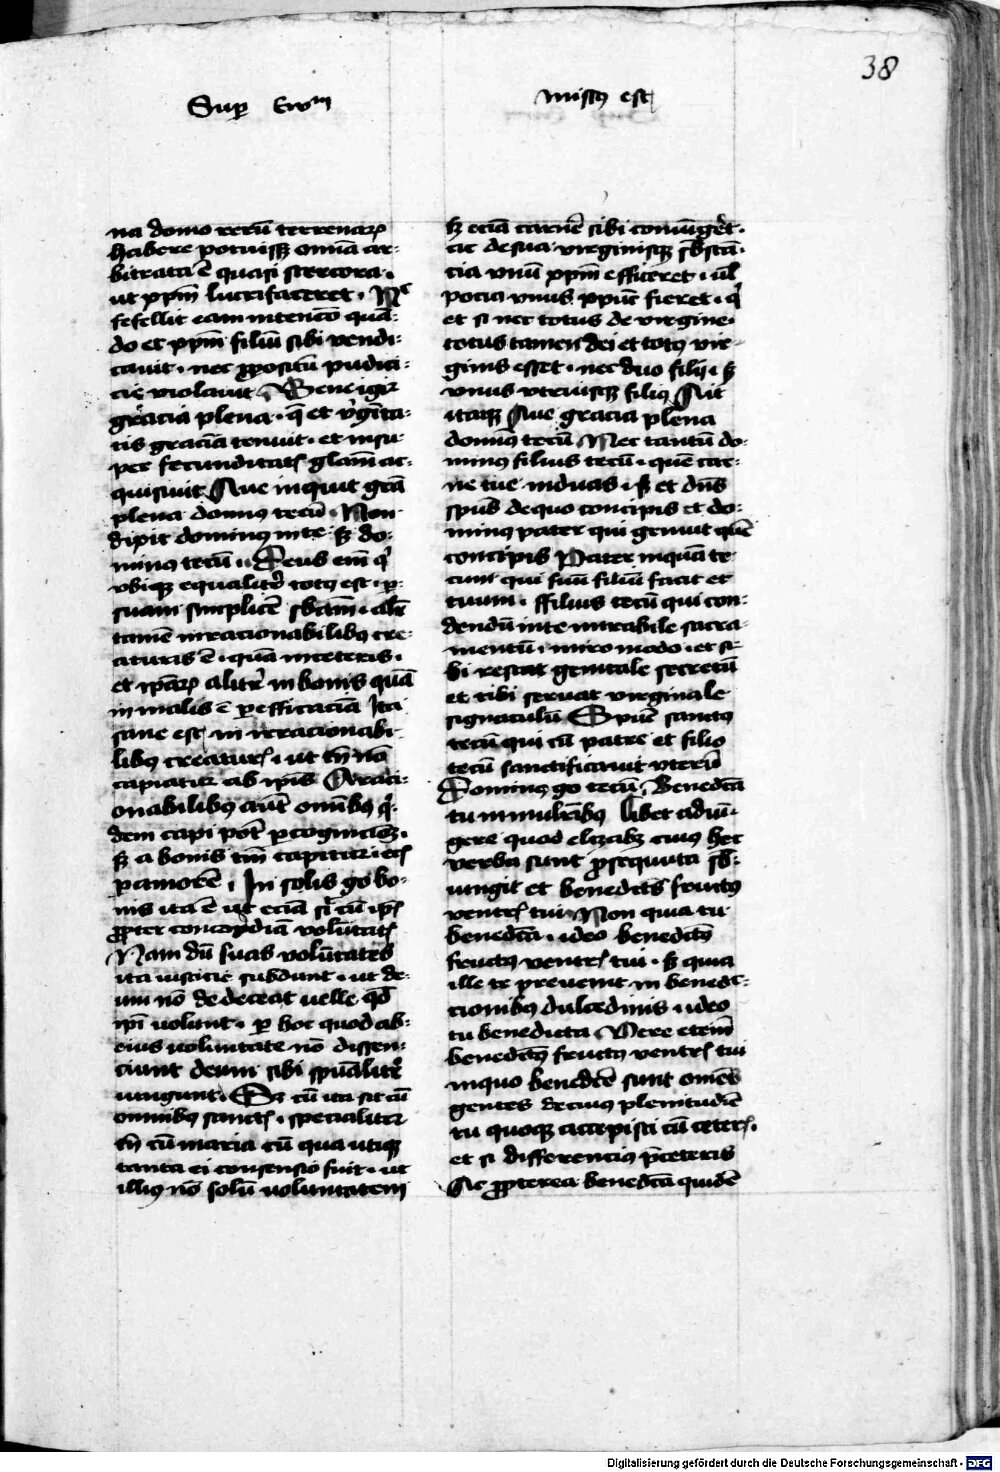 38
Sup̲ Ew̅m
missꝰ est
na domo rerū terrenaꝝ
habere potuisset omnia ar-
bitrata ē quasi stercora ·
ut xp̄m lucrifaceret · Nec
fefellit eam intencō quan-
do et xp̄m filiū sibi vendi-
cauit · nec ꝓpositū pudici-
cie violauit Bene igit᷑
gracia plena · q̄ et v̓gīta-
tis graciā tenuit · et insu-
per fecunditatꝭ gl̄am ac-
quisiuit Aue inquit grā
plena domīꝰ tecū · Non
dixit dominꝰ in te sꝫ do-
minꝰ tecū · Deus em̄ qⁱ
vbiqꝫ equalit̓ totꝰ est · ꝑ
suam simplicē sb̄am · alit̓
tamē in racionabilibꝰ cre-
aturis ē · quā in ceteris ·
et ip̄aꝝ alit̓ in bonis quā
in malis ē ꝑ efficaciā Ita
sane est in irracionabi-
libꝰ creaturꝭ · ut tn̄ nō
capiatur ab ip̄is A raci-
onabilibꝰ aut̄ omībꝰ qⁱ-
dem capi pōt ꝑ cognicōeꝫ ·
sꝫ a bonis tm̄ capitur ecꝭ
ꝑ amorē · In solis gͦ bo-
nis ita ē ut eciā sit cū ip̄ꝭ
ꝓpter concordiā volūtatꝭ
Nam dū suas volūtates
ita iusticie subdunt · ut de-
um nō dedeceat uelle qd̄
ip̄i uolunt · ꝑ hoc quod ab
eius uoluntate nō dissen-
ciunt deum sibi spūalit̓
iungunt · Sꝫ cū ita sit cū
omnibꝰ sanctꝭ · specialiter
tn̄ cū maria cū qua utiqꝫ
tanta ei consensio fuit · ut
illiꝰ nō solū uoluntatem
sꝫ eciā carnē sibi coniūgeret ·
ac de sua virginisqꝫ sb̄stā-
cia vnū xp̄m efficeret · ul̄
pocius vnus xp̄us fieret · qⁱ
et si nec totus de virgine ·
totus tamen dei et totꝰ vir-
ginis esset · nec duo filij · sꝫ
vnus vtriusqꝫ filiꝰ Ait
itaqꝫ Aue gracia plena
domīꝰ tecū Nec tantū do-
minꝰ filius tecū · quē car-
ne tue induis · sꝫ et dn̄s
sp̄us de quo concipis et do-
minꝰ pater qui genuit quē
concipis Pater inquā te-
cum qui suū filiū facit et
tuum · ffilius tecū qui con-
dendū in te mirabile sacra-
mentū · miro modo · et si-
bi reserat genitale secretū
et tibi seruat virginale
signaculū Sp̄us sanctꝰ
tecū qui cū patre et filio
tecū sanctificauit vterū
Dominꝰ gͦ tecū · Benedcā
tu in mulieribꝰ libet adiū-
gere quod elizabꝫ eius hec
verba sunt ꝓsequuta sb̄-
iungit et benedictꝰ fructꝰ
ventrꝭ tui Non quia tu
benedcā · ideo benedictꝰ
fructꝰ ventrꝭ tui · sꝫ quia
ille te preuenit in benedic-
tionibꝰ dulcedinis · ideo
tu benedicta · Vere etem̄
benedictꝰ fructꝰ ventrꝭ tui
in quo benedcē sunt om̄es
gentes de cuius plenitudīe
tu quoqꝫ accepisti cū ceterꝭ ·
et si differencius p̄ ceteris
Ac ꝓpterea benedcā quidē
Digitalisierung gefördert durch die Deutsche Forschungsgemeinschaft · DFG